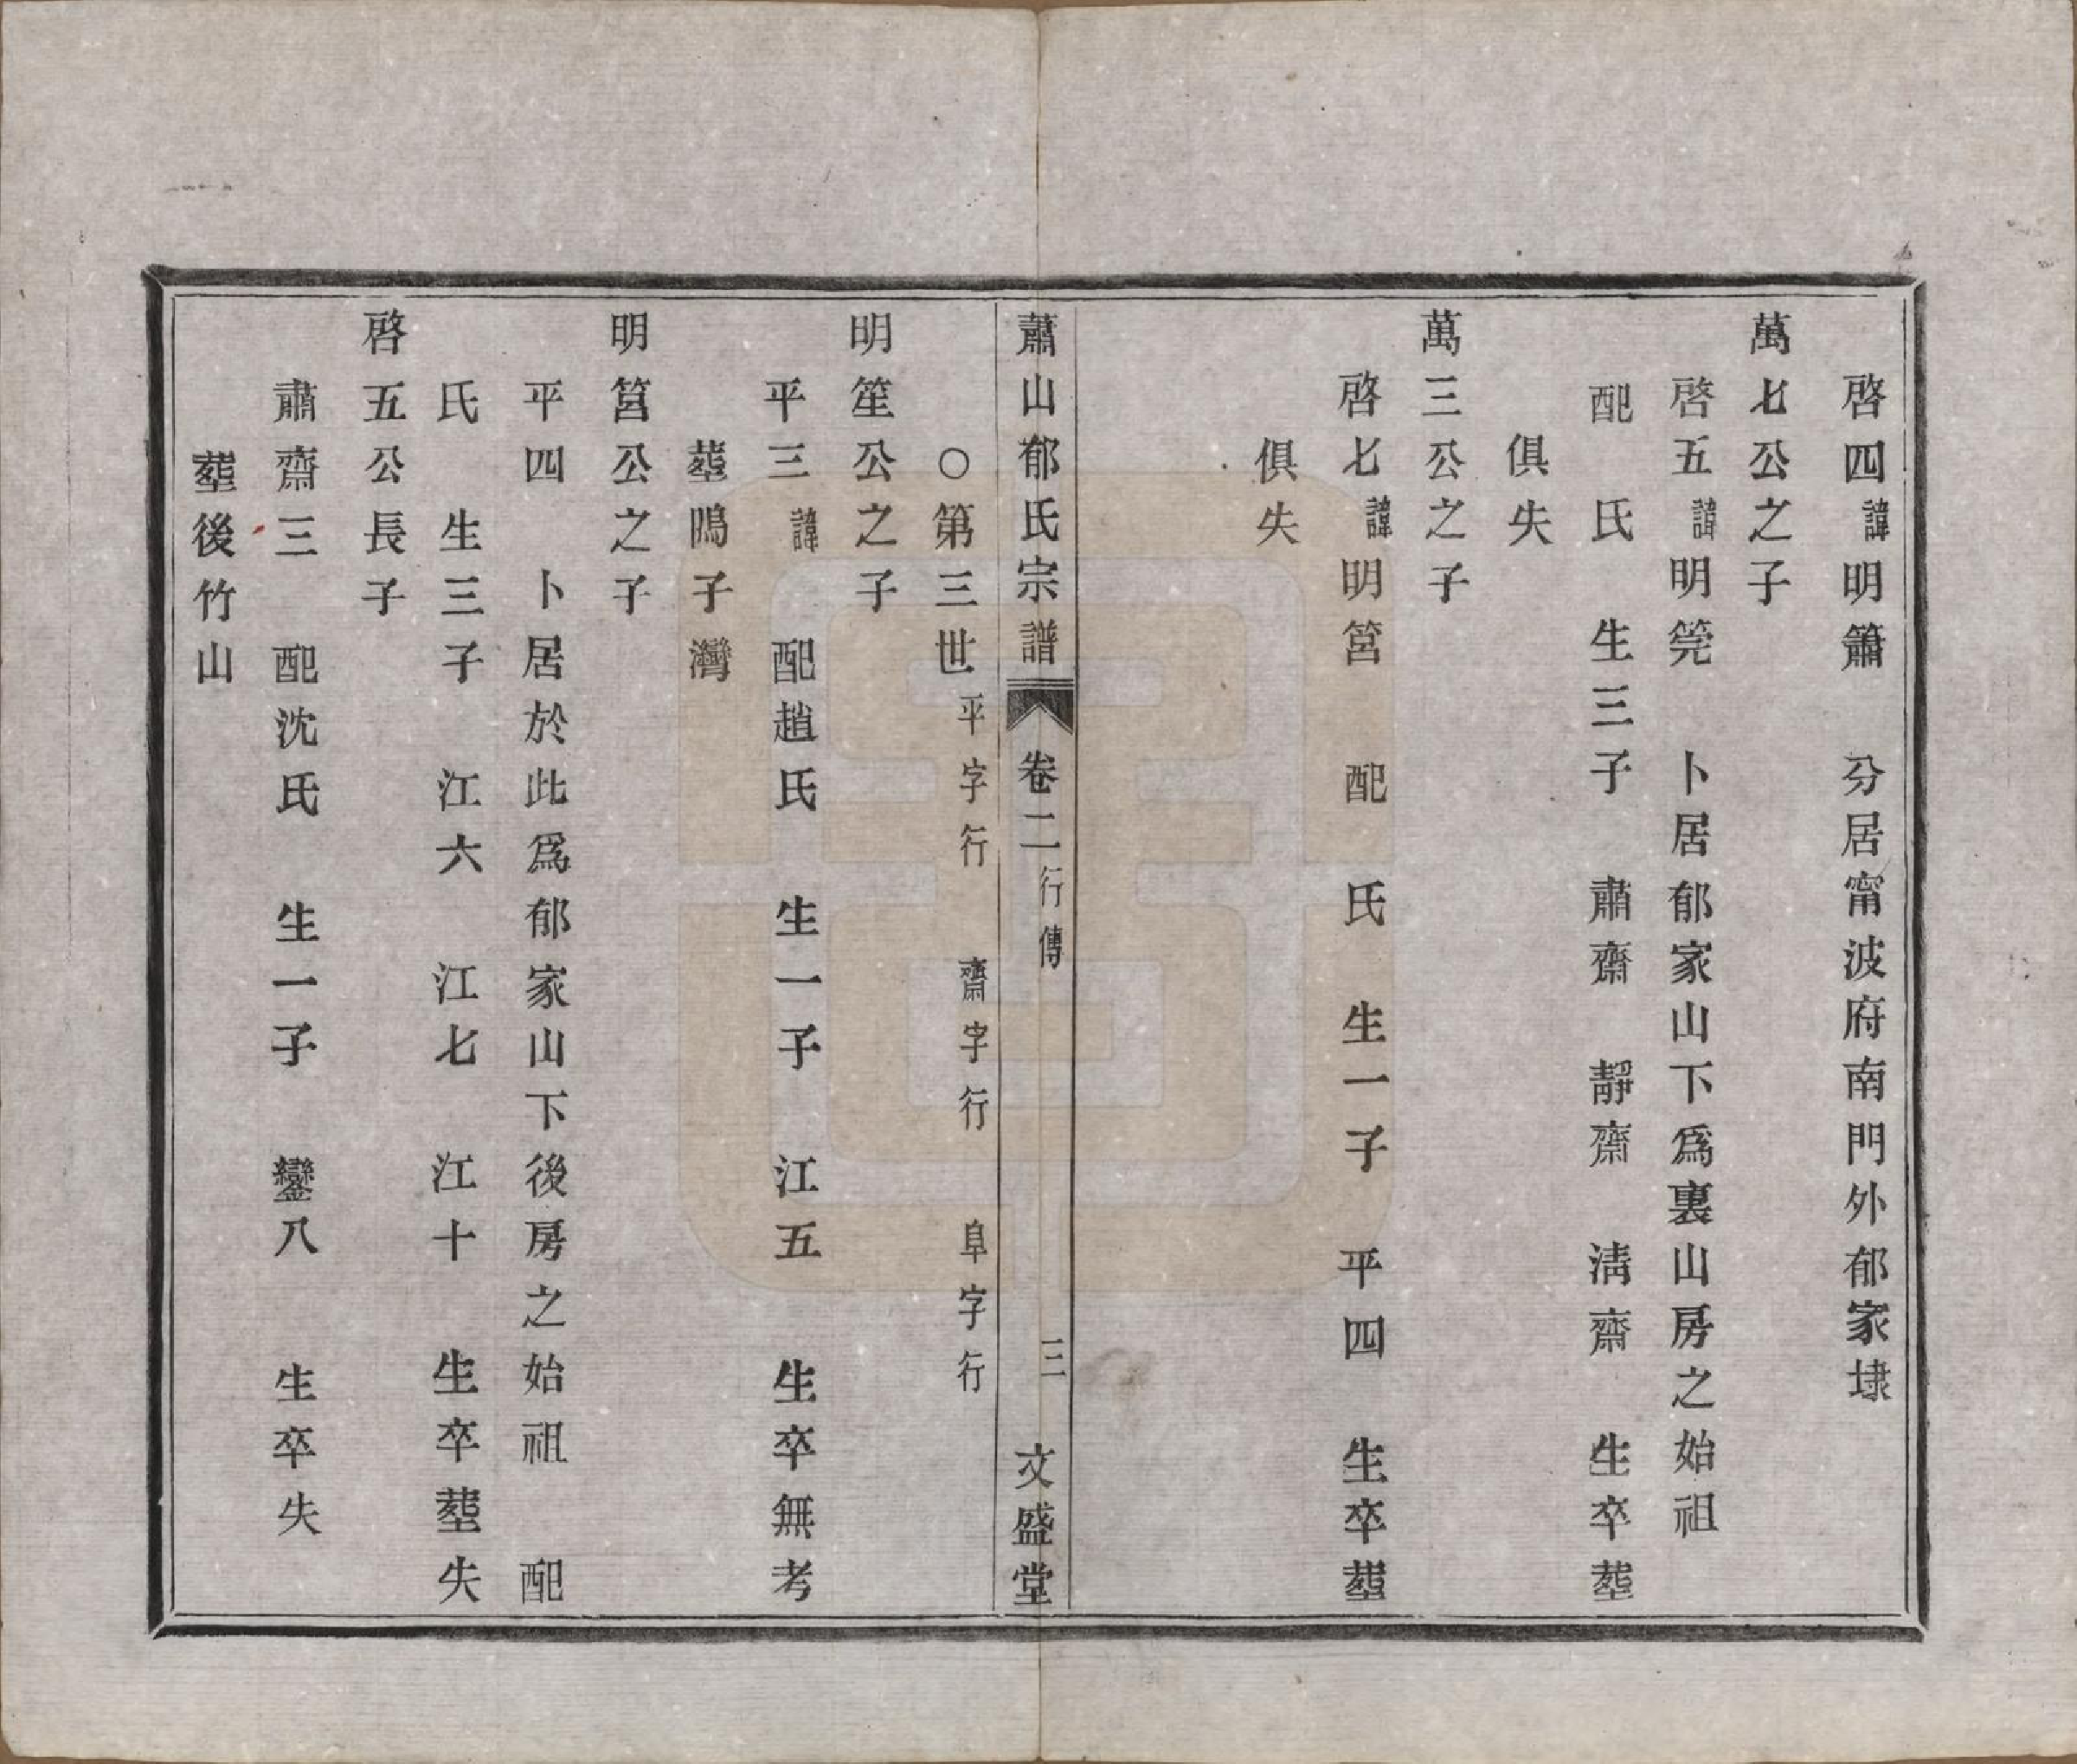 啓四諱明簫　分居甯波府南門外郁家埭
萬七公之子
啓五諱明筦　卜居郁家山下爲裏山房之始祖
配　氏　生三子　肅齋　靜齋　淸齋　生卒塟
俱失
萬三公之子
啓七諱明筥　配　氏　生一子　平四　生卒塟
俱失
蕭山郁氏宗譜　卷二　行傳　三　文盛堂
○第三世　平字行　齋字行　阜字行
明笙公之子
平三　諱　配趙氏　生一子　江五　生卒無考
塟鴊子灣
明筥公之子
平四　卜居於此爲郁家山下後房之始祖　配
氏　生三子　江六　江七　江十　生卒塟失
啓五公長子
肅齋三　配沈氏　生一子　鑾八　生卒失
塟後竹山